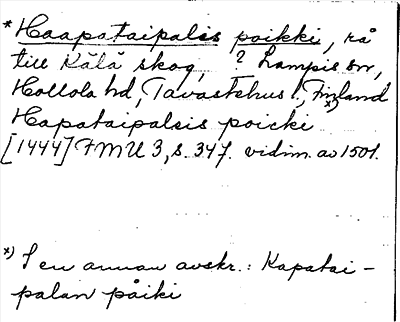 * Haapataipalis poikki, rå
till Kälä skog, ? Lampis sn,
Hollola hd, Tavastehus l., Finland
x)
Hapataipalsis poicki
[1444] FMU 3, s. 347. vidim. av 1501.
x) I en annan avskr.: Kapatai-
palan påiki